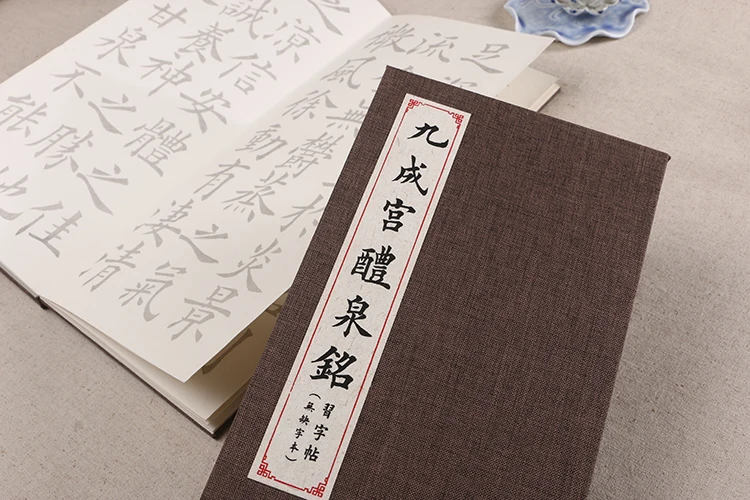 九成宫醴泉銘
習字帖
（無缺字本）
足
炎景
流
無鬱蒸之氣
微風徐動有淒清
之涼信安體之佳
誠養神之勝地
甘泉不能